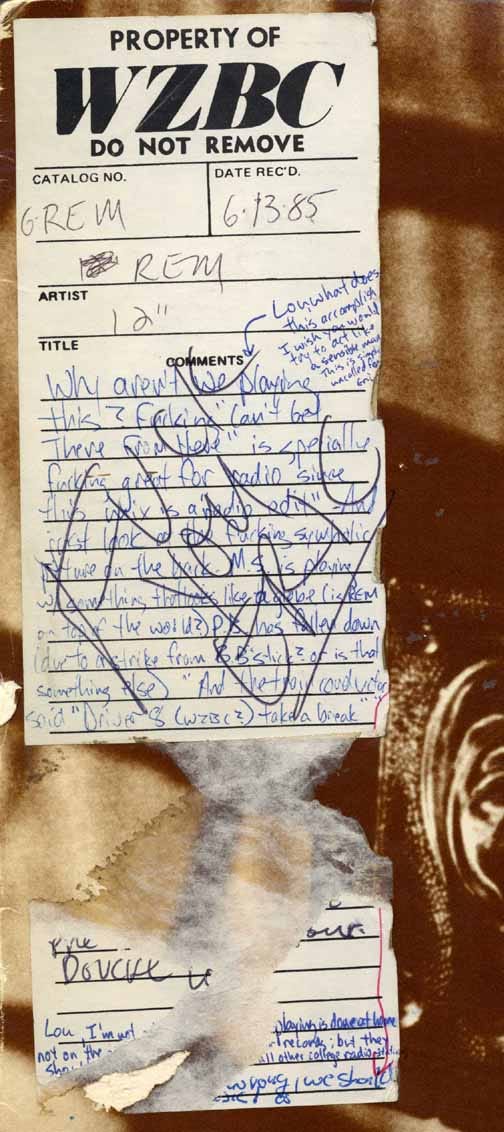 PROPERTY OF
WZBC
DO NOT REMOVE
CATALOG NO.
DATE REC'D.
G-REM
6-13-85
REM
ARTIST
12"
TITLE
COMMENTS
Lou what does
this accomplish
I wish you would
try to act like
a sensible man
This is simply
uncalled for
Why aren't we playing
this? Fucking "Can't Get
There From Here" is specially
fucking great for radio since
this mix is a radio edit". And
first look at the fucking symbolic
picture on the back. M.S. is playing
w/ something that looks like a globe (is REM
on top of the world?) P.B. has fallen down
(due to a strike from B.B's stick? or is that
something else) "And the train conductor
said "Driver 8 (WZBC?) take a break"
Lou, I'm not
playing is done at home
not on the
records; but they
all other college radio
wrong, we should